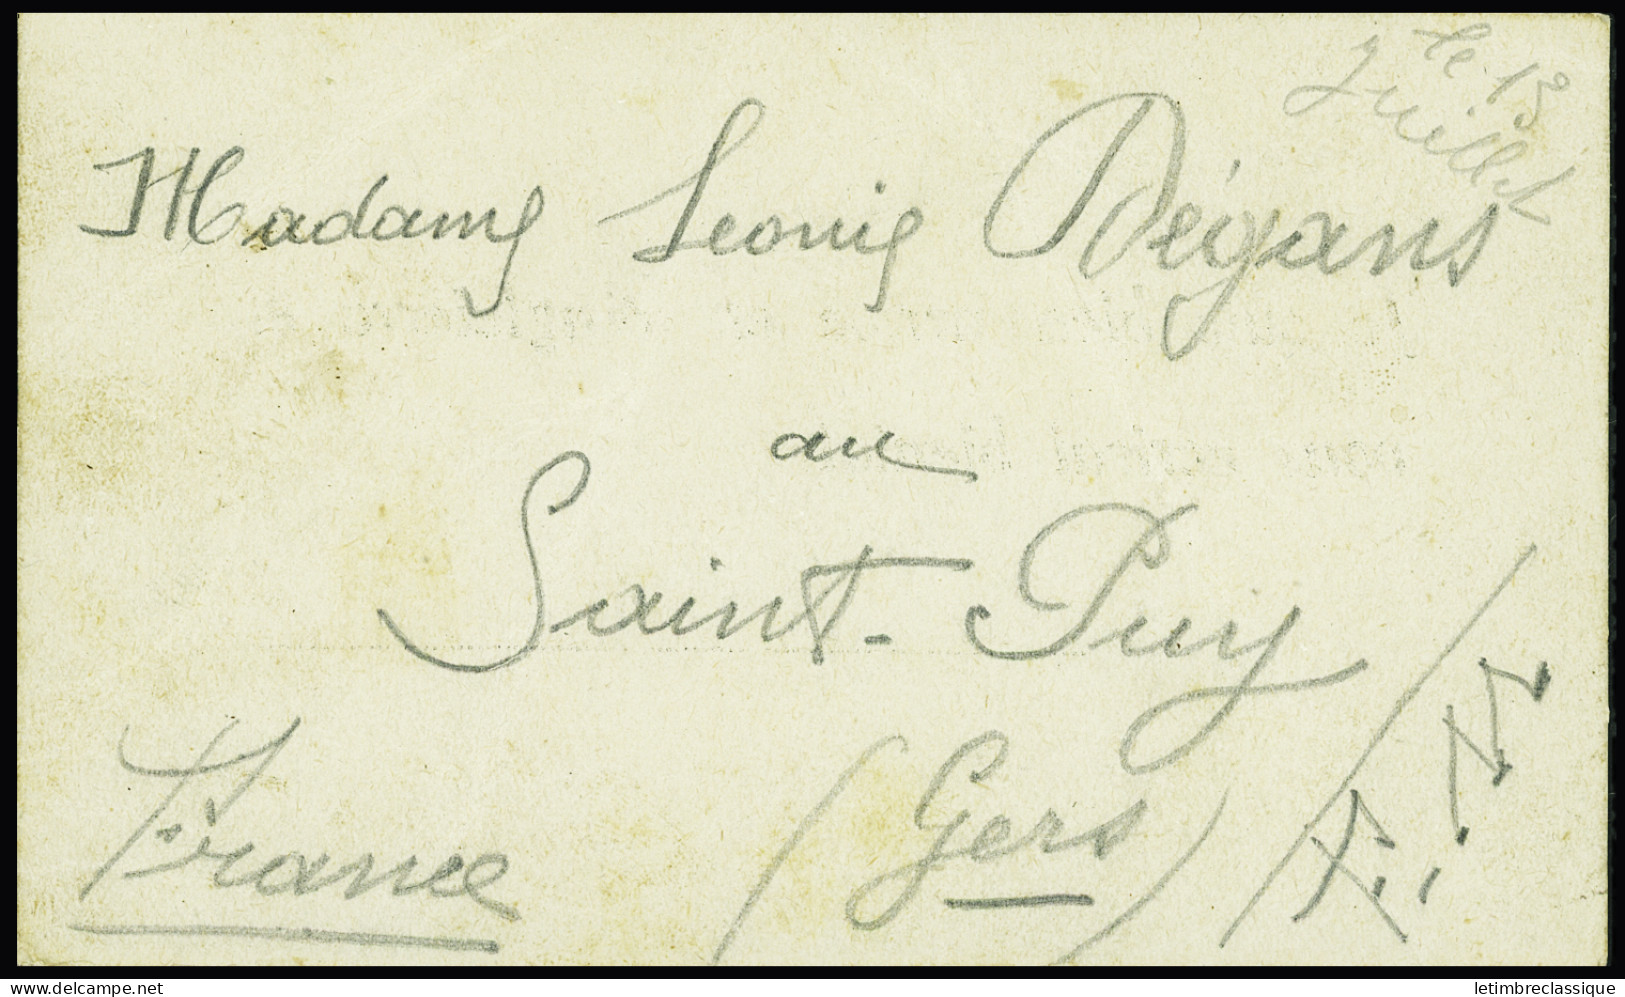 le 13
Juillet
Madame Leonie Dégans
au
Saint-Puy
(Gers)
France
letimbreclassique
www.delcampe.net